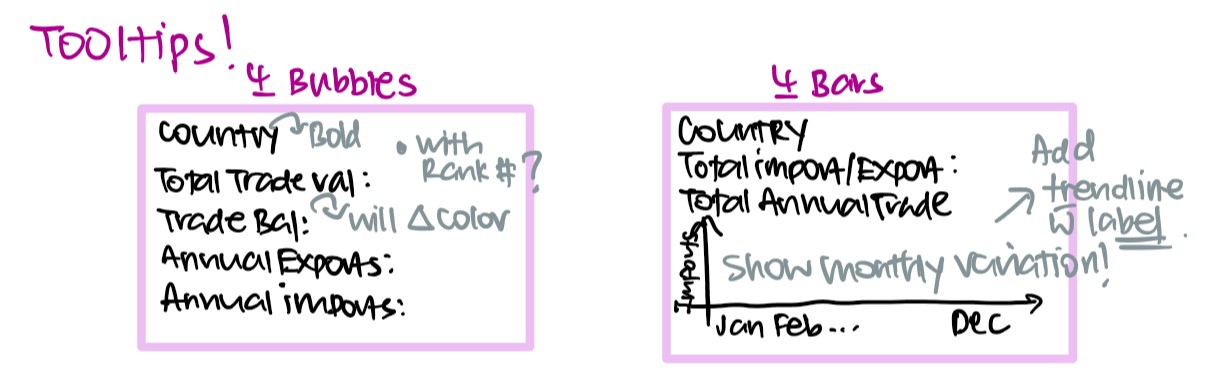 Tooltips!
4 Bubbles
Country Bold
• with Rank #?
Total Trade val:
Trade Bal: will Δ color
Annual Exports:
Annual imports:
4 Bars
COUNTRY
Total import/Export:
Total Annual Trade
Add
trendline
w̅ label.
Imports
Show monthly variation!
Jan Feb... Dec